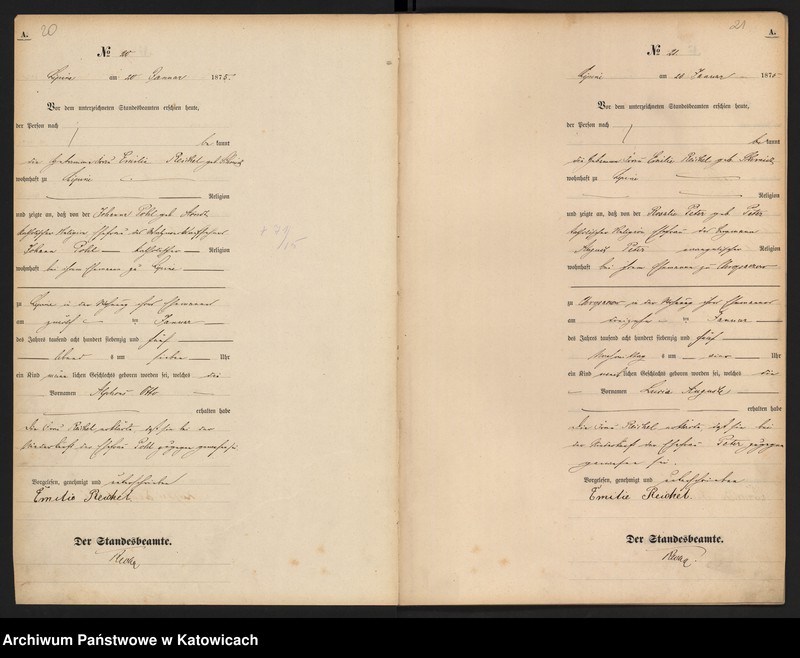 A.
20
№ 20
Lipine am 20 Januar 1875
Vor dem unterzeichneten Standesbeamten erschien heute,
der Person nach
bekannt
die Hebamme Frau Emilie Reichel geb
wohnhaft zu Lipine
Religion
und zeigte an, daß von der Johanna Pohl geb
katholischer Religion Ehefrau des
Johann Pohl katholischer Religion
wohnhaft bei ihrem Ehemanne zu Lipine
zu Lipine in der Wohnung ihres Ehemannes
am zwölf ten Januar
des Jahres tausend acht hundert siebenzig und fünf
Abend s um sieben Uhr
ein Kind männlichen Geschlechts geboren worden sei, welches die
Vornamen Alphons Otto
erhalten habe
Die Frau Reichel erklärte, daß sie bei der
Niederkunft der Ehefrau Pohl zugegen gewesen sei
Vorgelesen, genehmigt und unterschrieben
Emilie Reichel
Der Standesbeamte.
21
A.
№ 21
Lipine am 20 Januar 1875
Vor dem unterzeichneten Standesbeamten erschien heute,
der Person nach
bekannt
die Hebamme Frau Emilie Reichel geb
wohnhaft zu Lipine
Religion
und zeigte an, daß von der Rosalie Peter geb Peter
katholischer Religion Ehefrau des
August Peter evangelischer Religion
wohnhaft bei ihrem Ehemanne zu
zu in der Wohnung ihres Ehemannes
am dreizehn ten Januar
des Jahres tausend acht hundert siebenzig und fünf
s um vier Uhr
ein Kind weiblichen Geschlechts geboren worden sei, welches die
Vornamen Lucia Auguste
erhalten habe
Die Frau Reichel erklärte, daß sie bei
der Niederkunft der Ehefrau Peter zugegen
gewesen sei.
Vorgelesen, genehmigt und unterschrieben
Emilie Reichel.
Der Standesbeamte.
Archiwum Państwowe w Katowicach